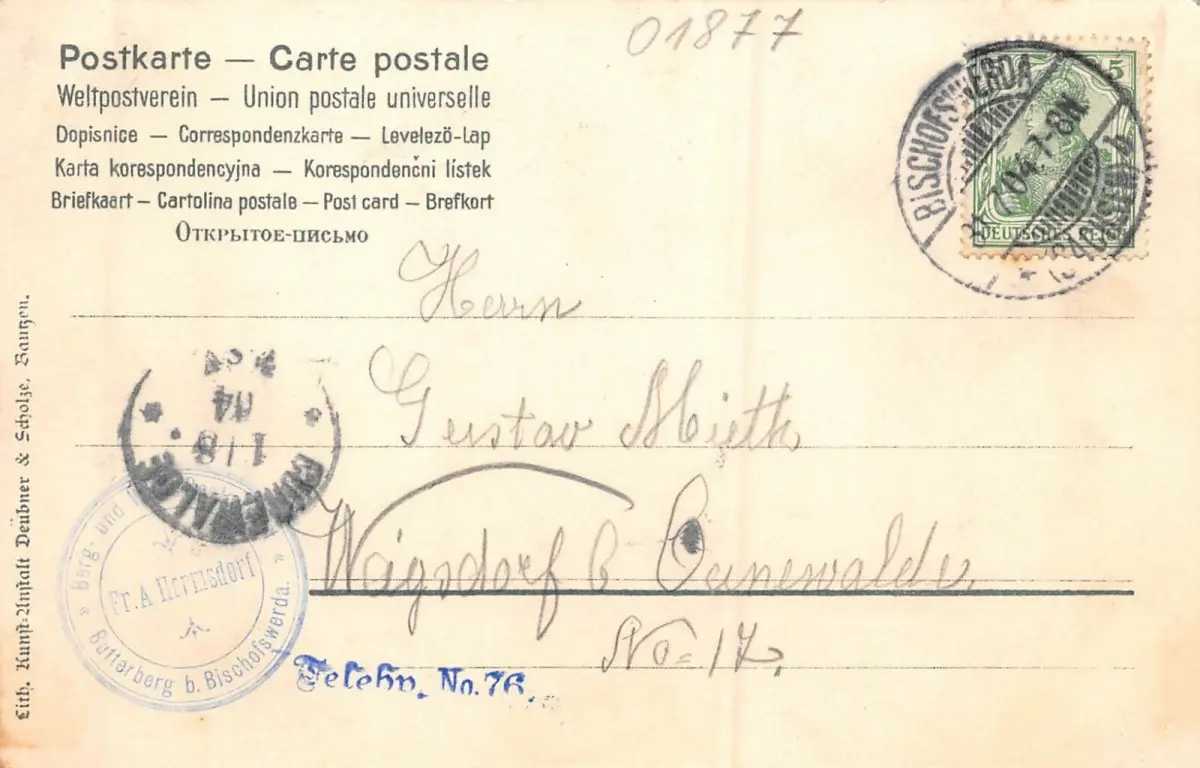 01877
Postkarte — Carte postale
Weltpostverein — Union postale universelle
Dopisnice — Correspondenzkarte — Levelező-Lap
Karta korespondencyjna — Korespondenčni lístek
Briefkaart — Cartolina postale — Post card — Brefkort
Открытое-письмо
BISCHOFSWERDA
7-8N.
(SACHSEN) b
5
DEUTSCHES REICH
Herrn
Gustav Mieth
Weigsdorf b Cunewalde
No 17.
CUNEWALDE
1/8
04
Berg- und
Fr. A Hermsdorf
Butterberg b. Bischofswerda.
Telephn. No. 76.
Lith. Kunst-Anstalt Deubner & Scholze, Bautzen.